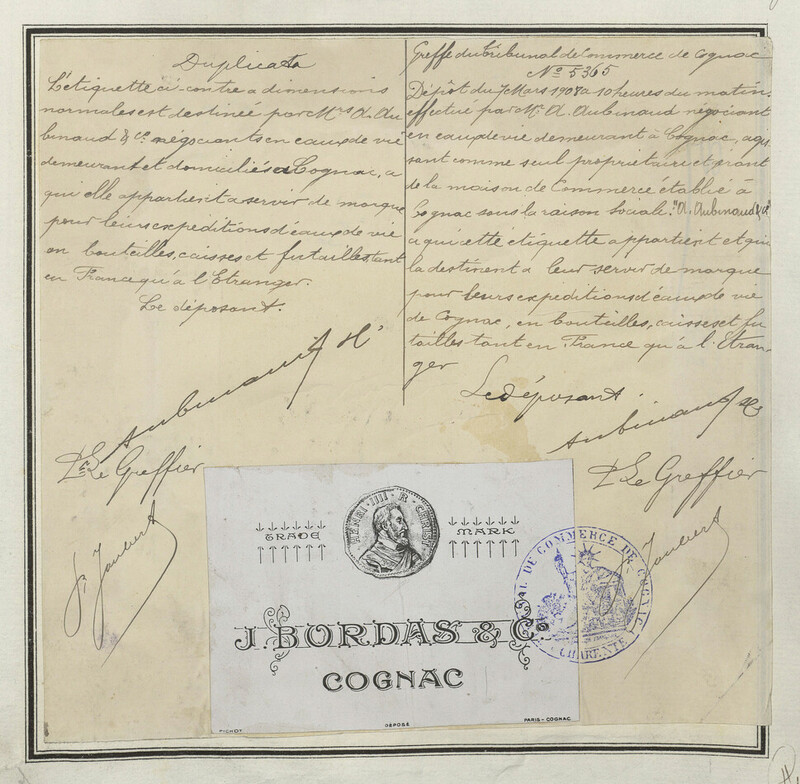 Duplicata
L'étiquette ci-contre a dimensions
normales est destinée par Mrs A. Au-
binaud & Cie négociants en eaux de vie
demeurant et domiciliés à Cognac, a
qui elle appartient a servir de marque
pour leurs expeditions d'eaux de vie
en bouteilles, caisses et futailles, tant
en France qu'à l'Etranger.
Le déposant.
Aubinaud A
Pr Le Greffier
Joubert
Greffe du tribunal de Commerce de Cognac
No 5365
Dépôt du 7 Mars 1908 a 10 heures du matin
effectué par Mr A. Aubinaud négociant
en eaux de vie demeurant à Cognac, agis
sant comme seul propriétaire et gérant
de la maison de Commerce établie à
Cognac sous la raison sociale. "A. Aubinaud & Cie"
a qui cette étiquette appartient et qui
la destinent a leur servir de marque
pour leurs expeditions d'eaux de vie
de Cognac, en bouteilles, caisses et fu
tailles tant en France qu'à l'Etran-
ger
Le déposant.
Aubinaud
Pr Le Greffier
Joubert
HENRI · IIII · R · CHRIST
TRADE MARK
J. BORDAS & Co
COGNAC
PICHOT
DÉPOSÉ
PARIS - COGNAC
DE COMMERCE DE COGNAC
CHARENTE